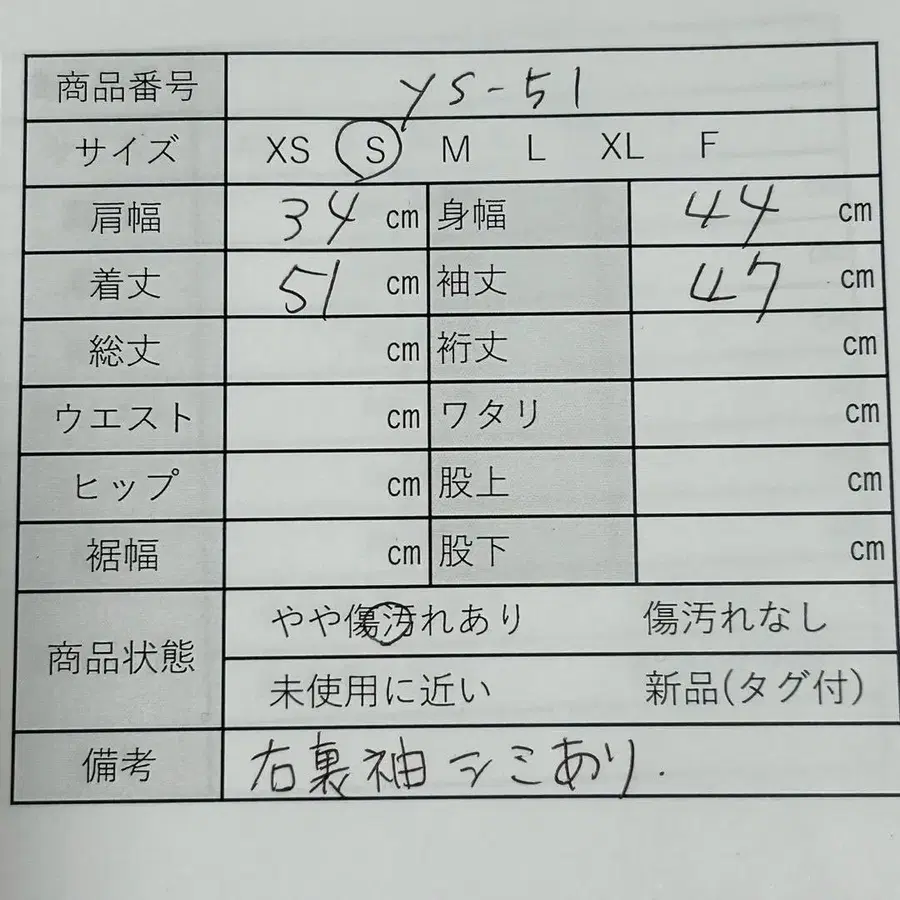 商品番号 YS-51
サイズ XS S M L XL F
肩幅 34 cm 身幅 44 cm
着丈 51 cm 袖丈 47 cm
総丈 cm 裄丈 cm
ウエスト cm ワタリ cm
ヒップ cm 股上 cm
裾幅 cm 股下 cm
商品状態 やや傷汚れあり 傷汚れなし
未使用に近い 新品(タグ付)
備考 右裏袖シミあり.